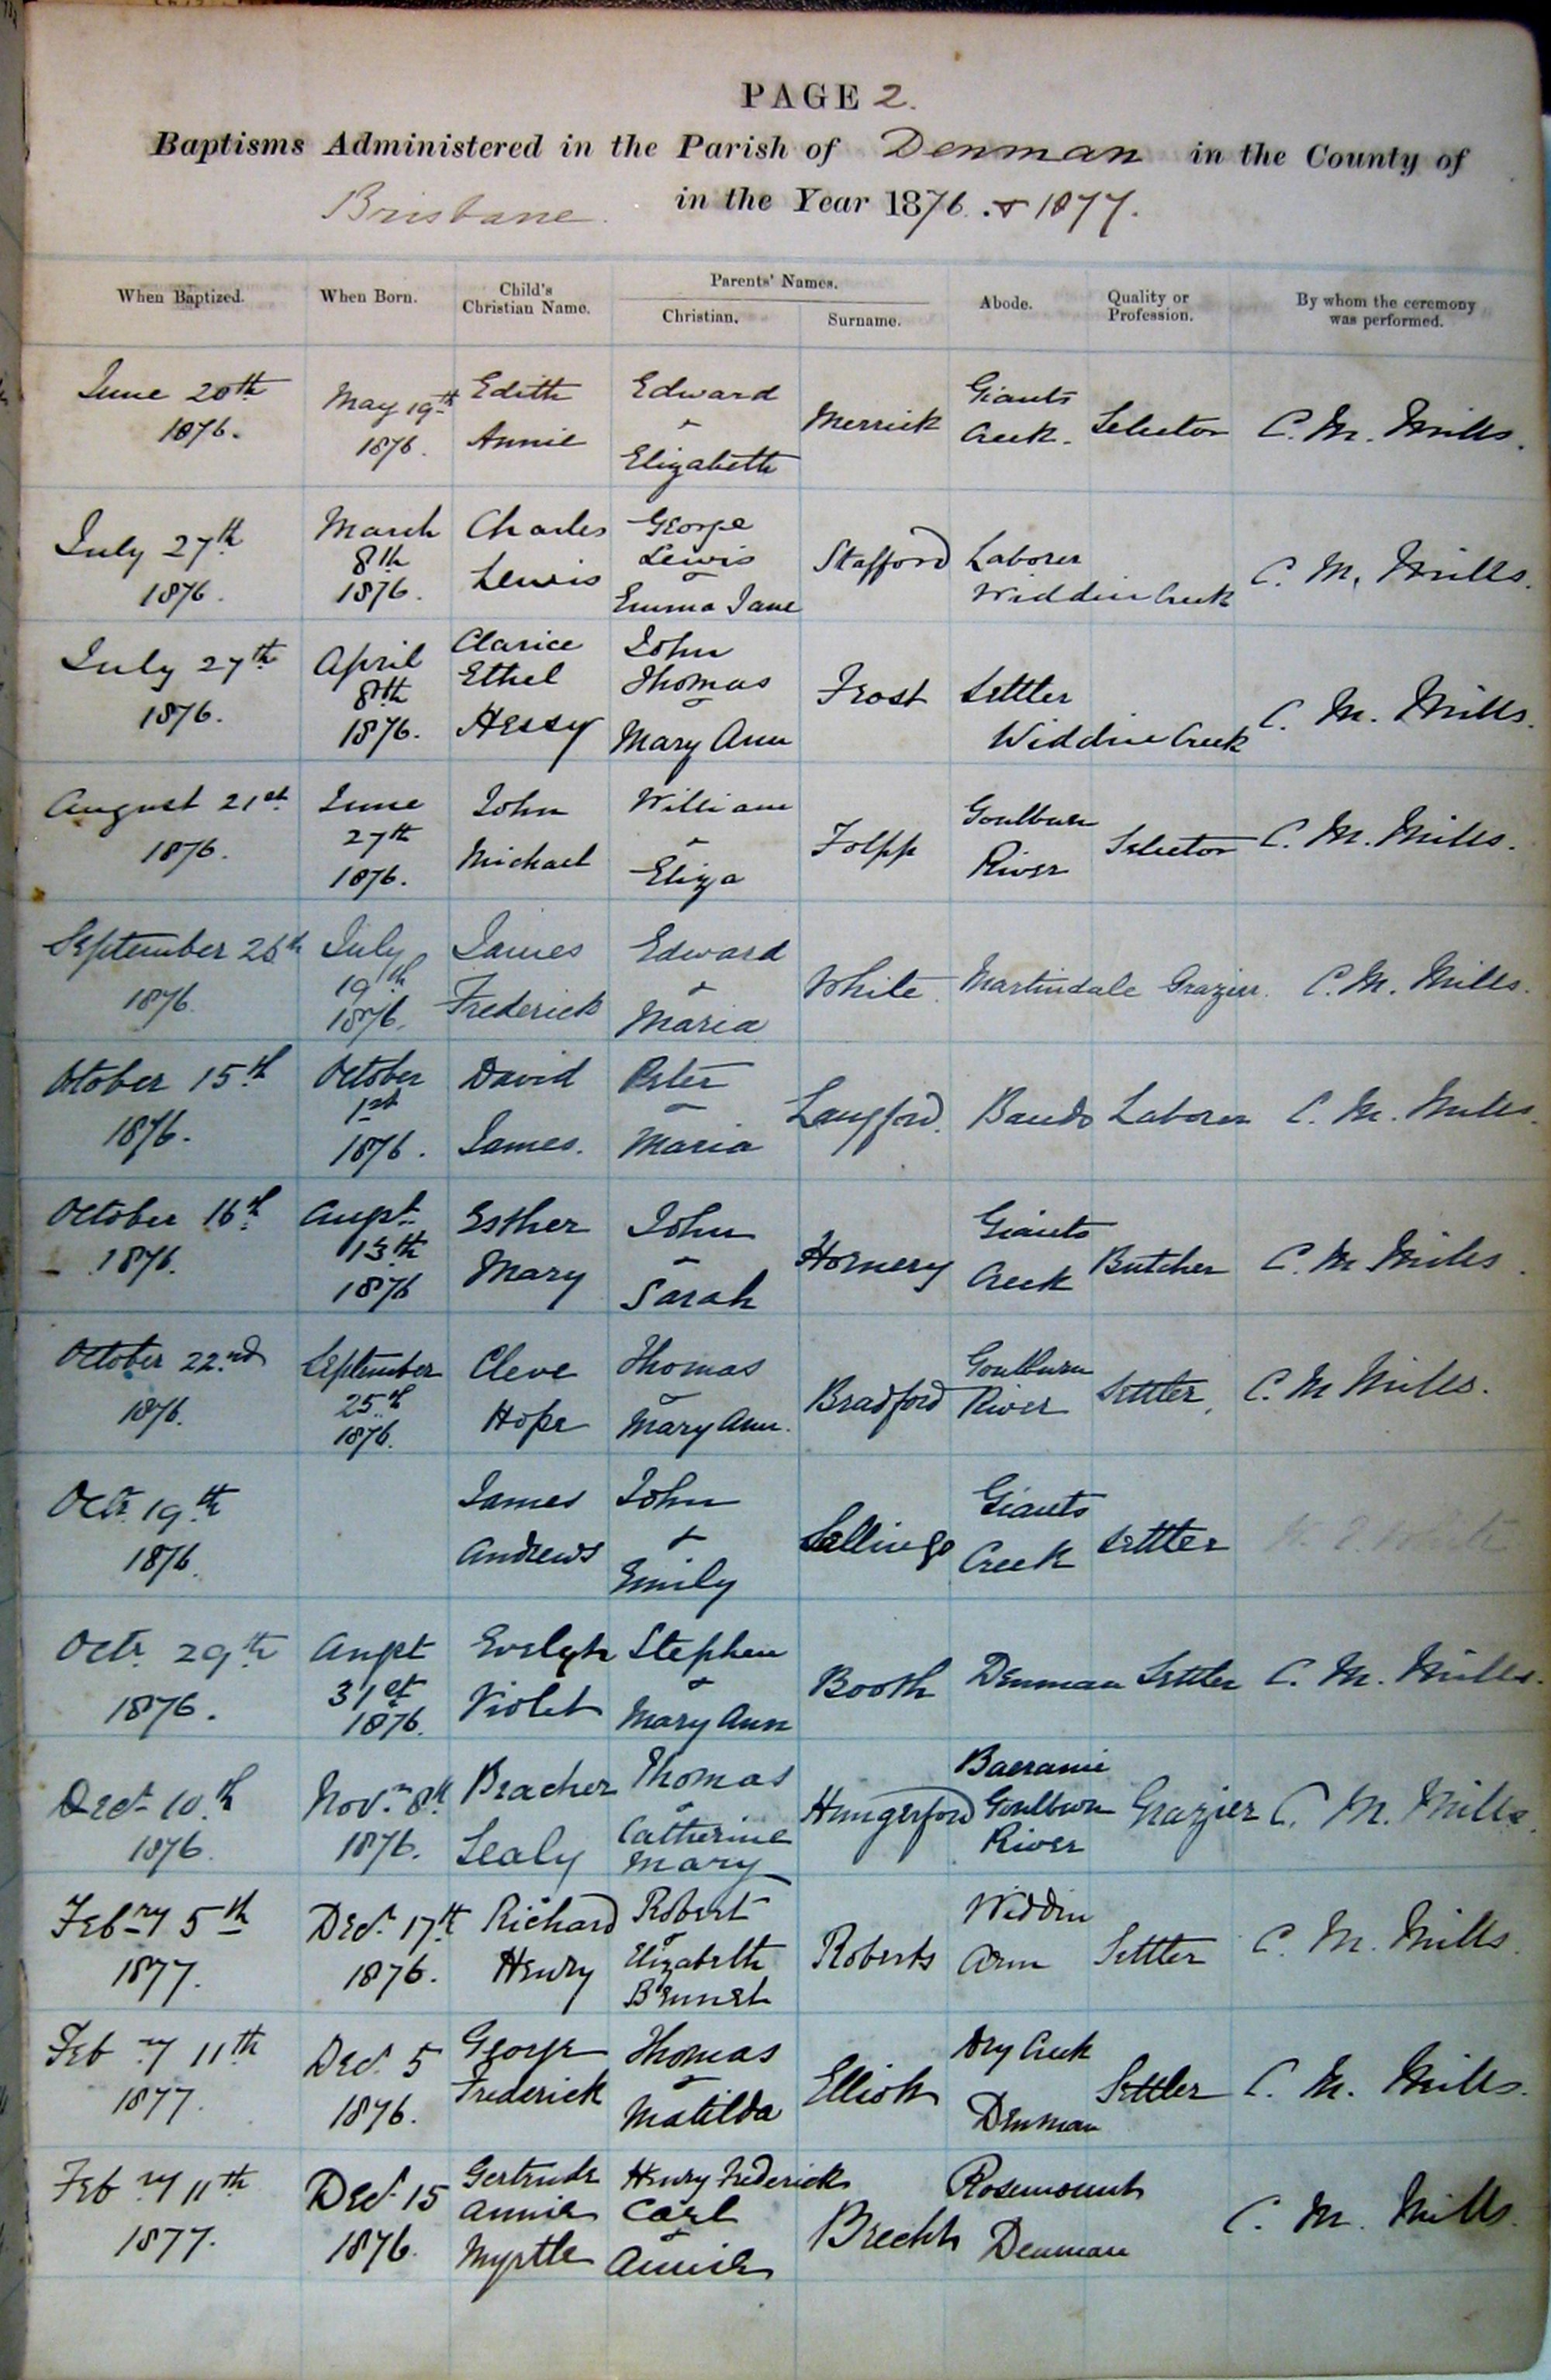 PAGE 2.
Baptisms Administered in the Parish of Denman in the County of
Brisbane. in the Year 1876. & 1877.
When Baptized. When Born. Child's Christian Name. Parents' Names. Christian. Surname. Abode. Quality or Profession. By whom the ceremony was performed.
June 20th 1876. May 19th 1876. Edith Annie Edward & Elizabeth Merrick Giants Creek. Selector C. M. Mills.
July 27th 1876. March 8th 1876. Charles Lewis George Lewis & Emma Jane Stafford Laborer Widdin Creek C. M. Mills.
July 27th 1876. April 8th 1876. Clarice Ethel Hessy John Thomas & Mary Ann Frost Settler Widdin Creek C. M. Mills.
August 21st 1876. June 27th 1876. John Michael William & Eliza Folpp Goulburn River Selector C. M. Mills.
September 26th 1876. July 19th 1876. James Frederick Edward & Maria White Martindale Grazier. C. M. Mills.
October 15th 1876. October 1st 1876. David James. Peter & Maria Langford. Laborer C. M. Mills.
October 16th 1876. Augst 13th 1876 Esther Mary John & Sarah Hornery Giants Creek Butcher C. M Mills.
October 22nd 1876. September 25th 1876. Cleve Hope Thomas & Mary Ann. Bradford Goulburn River Settler. C. M Mills.
Octr. 19th 1876. James Andrews John & Emily Giants Creek Settler White
Octr. 29th 1876. Augst 31st 1876. Evelyn Violet Stephen & Mary Ann Booth Denman Settler C. M. Mills.
Decr 10th 1876. Novr 8th 1876. Bracher Sealy Thomas & Catherine Mary Hungerford Baerami Goulburn River Grazier C. M. Mills.
Febry 5th 1877. Decr 17th 1876. Richard Henry Robert & Elizabeth Bennet Roberts Widdin Arm Settler C. M. Mills.
Febry 11th 1877. Decr 5 1876. George Frederick Thomas & Matilda Elliott Dry Creek Denman Settler C. M. Mills.
Febry 11th 1877. Decr 15 1876. Gertrude Annie Myrtle Henry Frederick Carl & Annie Brecht Rosemount Denman C. M. Mills.